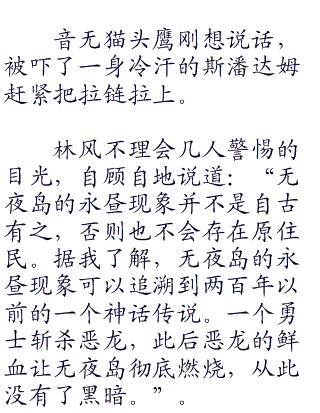 音无猫头鹰刚想说话，
被吓了一身冷汗的斯潘达姆
赶紧把拉链拉上。
林风不理会几人警惕的
目光，自顾自地说道：“无
夜岛的永昼现象并不是自古
有之，否则也不会存在原住
民。据我了解，无夜岛的永
昼现象可以追溯到两百年以
前的一个神话传说。一个勇
士斩杀恶龙，此后恶龙的鲜
血让无夜岛彻底燃烧，从此
没有了黑暗。”。